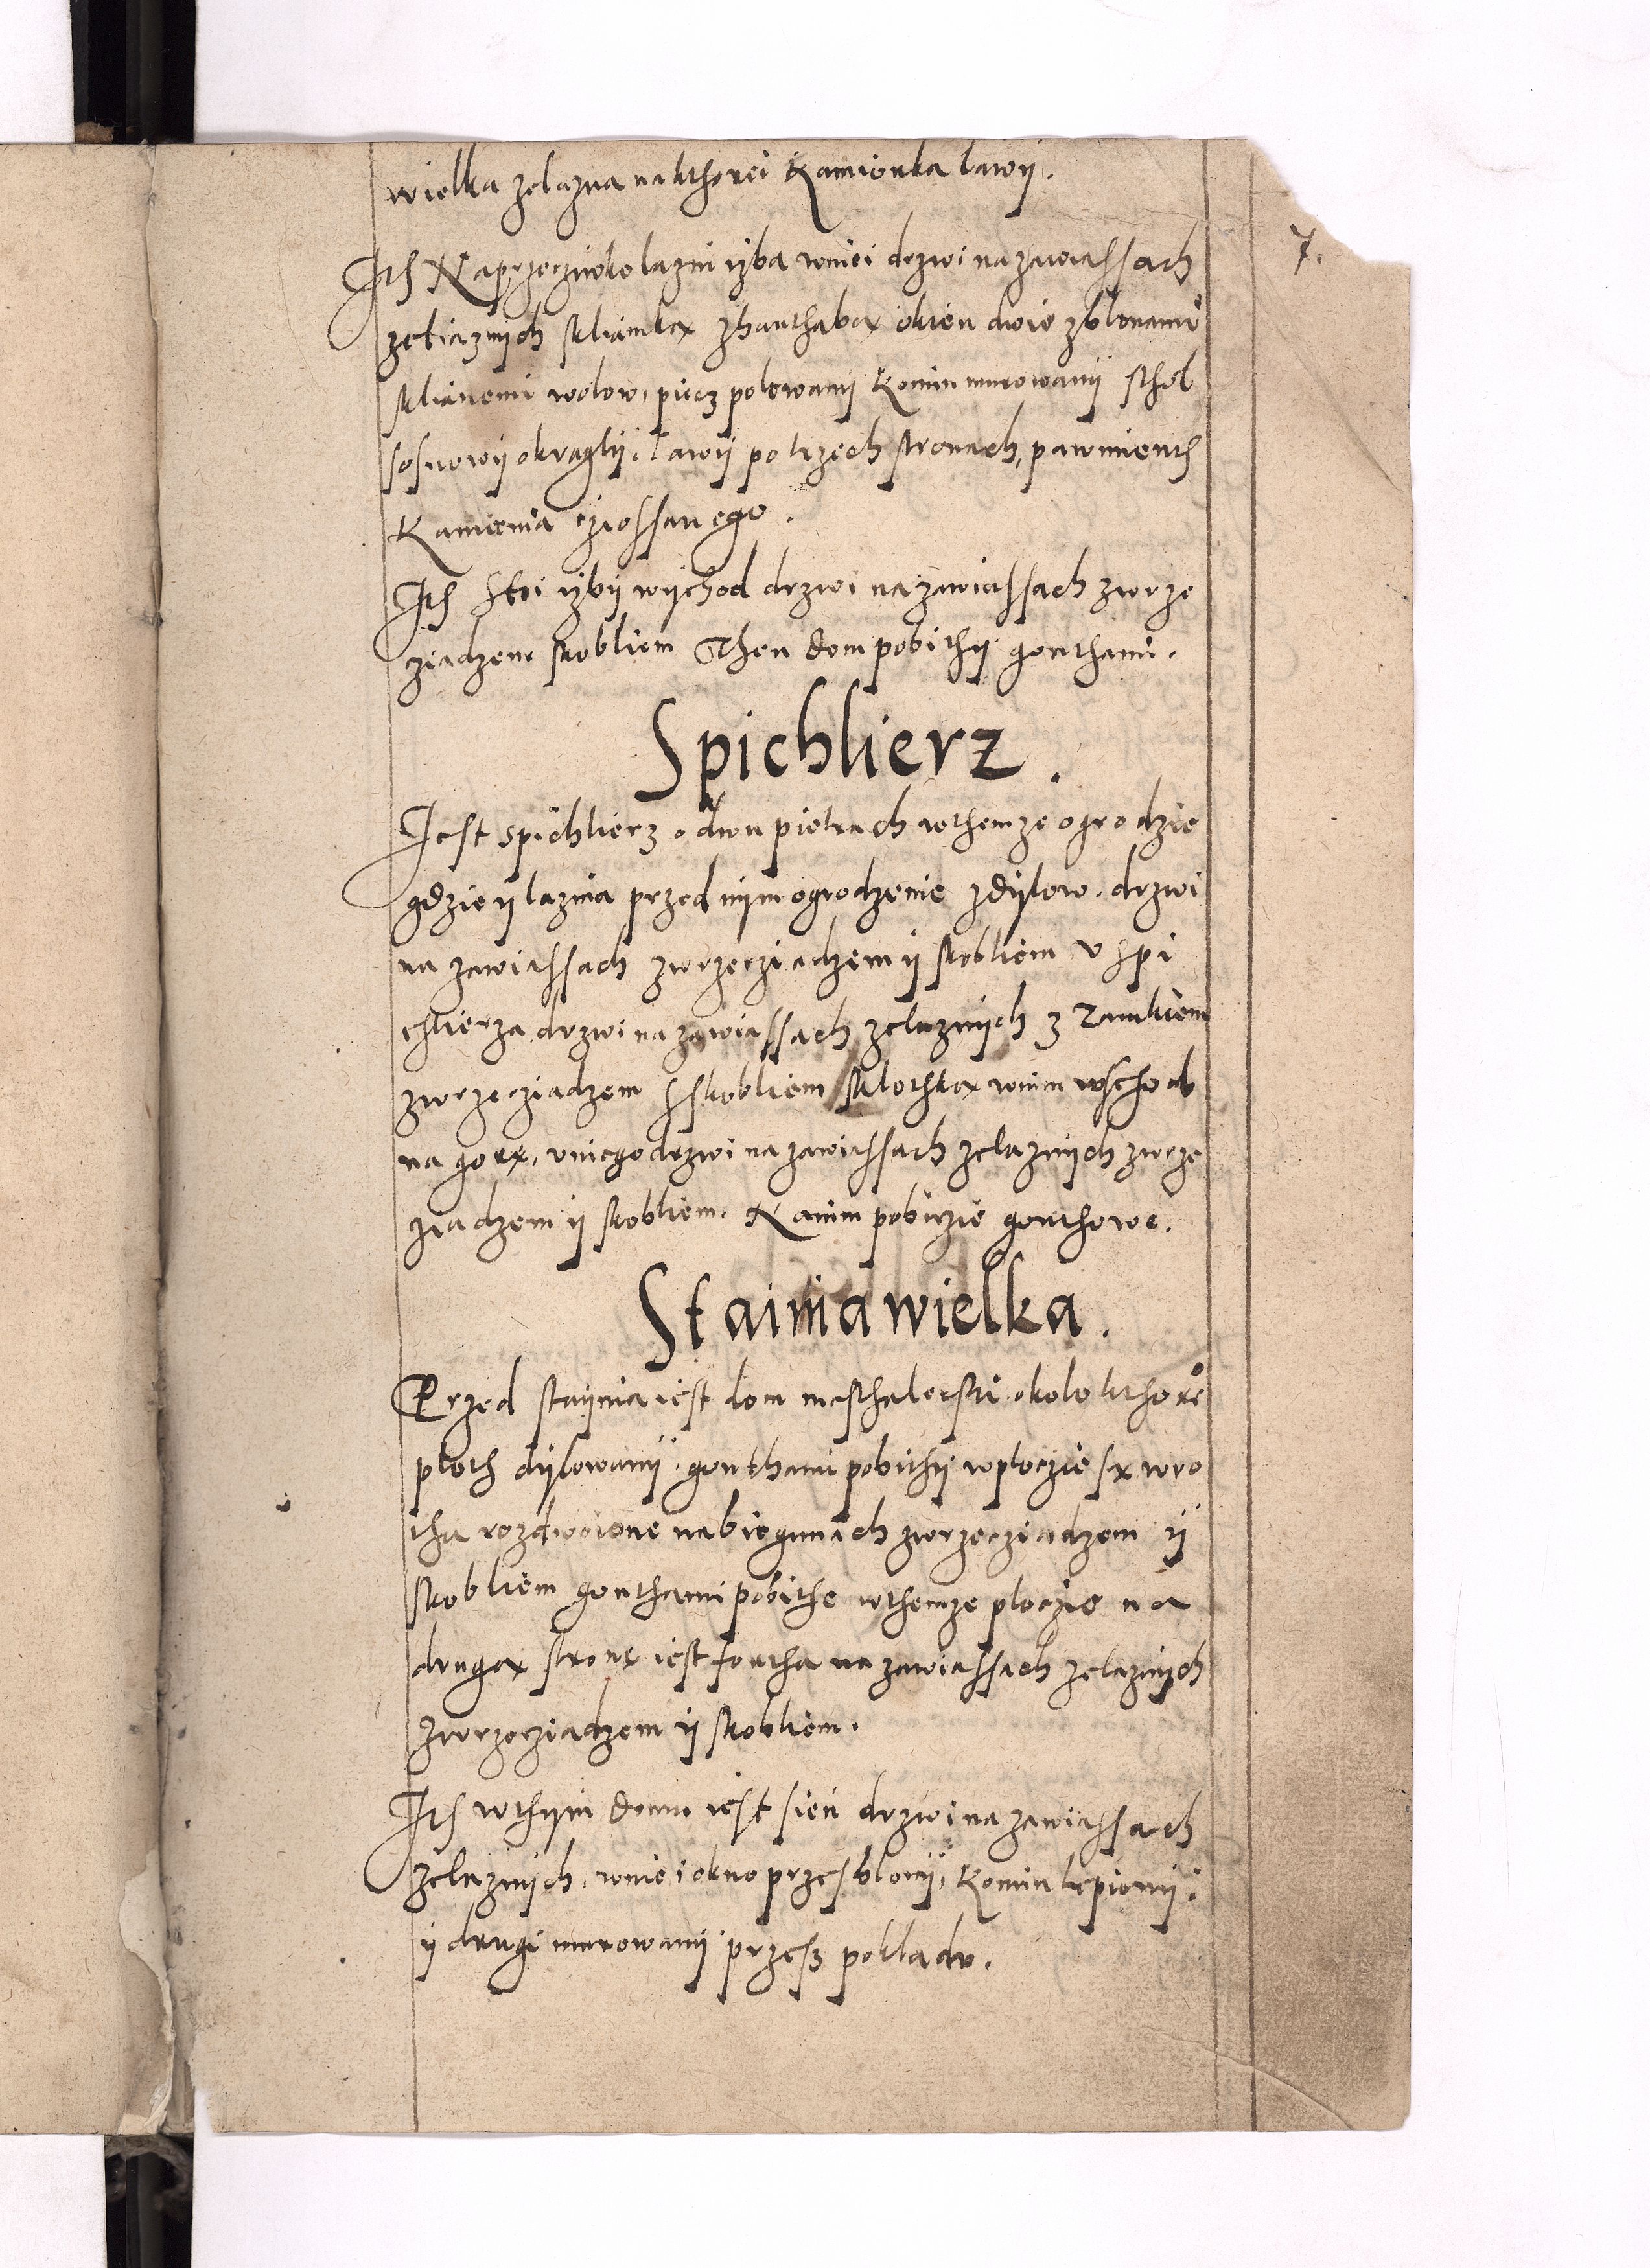 wielka zelazna na kthorei Kamionka lawy.
7.
Ith Naprzeciwko lazni izba wniei drzwi na zawiassach
zeliaznich skliamką zhanthabą okien dwie zblonami
skliannemi wolow, piecz polewany Komin murowany sthol
sosnowy okragly, lawy po trzech stronach, pawimenth
Kamienia cziossanego.
Ith Stei izby wychod drzwi na zawiassach zwrze
ziadzem skobliem Then dom pobithy gonthami.
Spichlierz.
Jest spichlierz o dwu pietrach wthemze ogrodzie
gdzie y laznia przed nym ogrodzenie zdylow. drzwi
na zawiassach zwrzecziadzem y skobliem v spi
chlierza drzwi na zawiassach zelaznych z Zamkiem
zwrzecziadzem sskobliem sklothką wnim wschod
na gorę, v niego drzwi na zawiassach zelaznych zwrze
ziadzem y skobliem. Kanim pobiczie gonthowe.
Stainia wielka.
Przed staynia iest dom masthalerski okolo kthore
ploth dylowany, gonthami pobithy wploczie są wro
tha rozdwoione na biegunach zwrzecziadzem y
skobliem gonthami pobithe wthemze ploczie na
drugą stronę iest fortha na zawiassach zelaznych
zwrzecziadzem y skobliem.
Ith wthym domu iest sień drzwi na zawiassach
zelaznych, wniei okno przes blony, Komin lepiony,
y drugi murowany przesz pokladv.